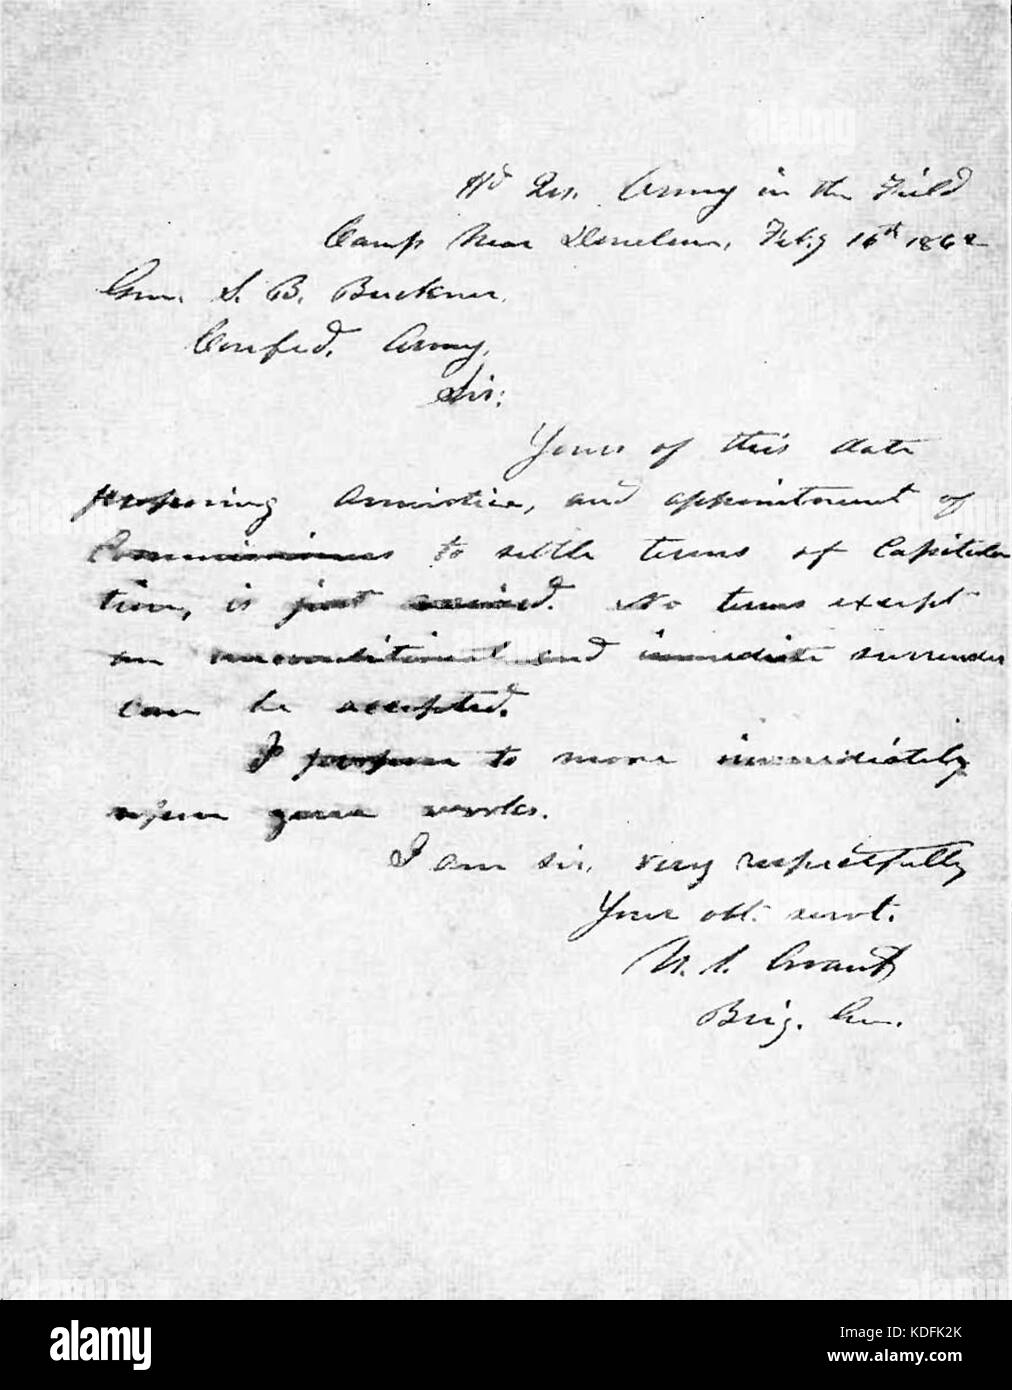 Hd Qrs. Army in the Field
Camp Near Donelson, Feb.y 16th 1862
Gen. S. B. Buckner,
Confed. Army,
Sir:
Yours of this date
proposing Armistice, and appointment of
Commissioners to settle terms of Capitula
tion, is just received. No terms except
an unconditional and immediate surrender
can be accepted.
I propose to move immediately
upon your works.
I am sir, very respectfully
Your obt. servt.
U. S. Grant
Brig. Gen.
alamy
alamy
Image ID: KDFK2K
www.alamy.com